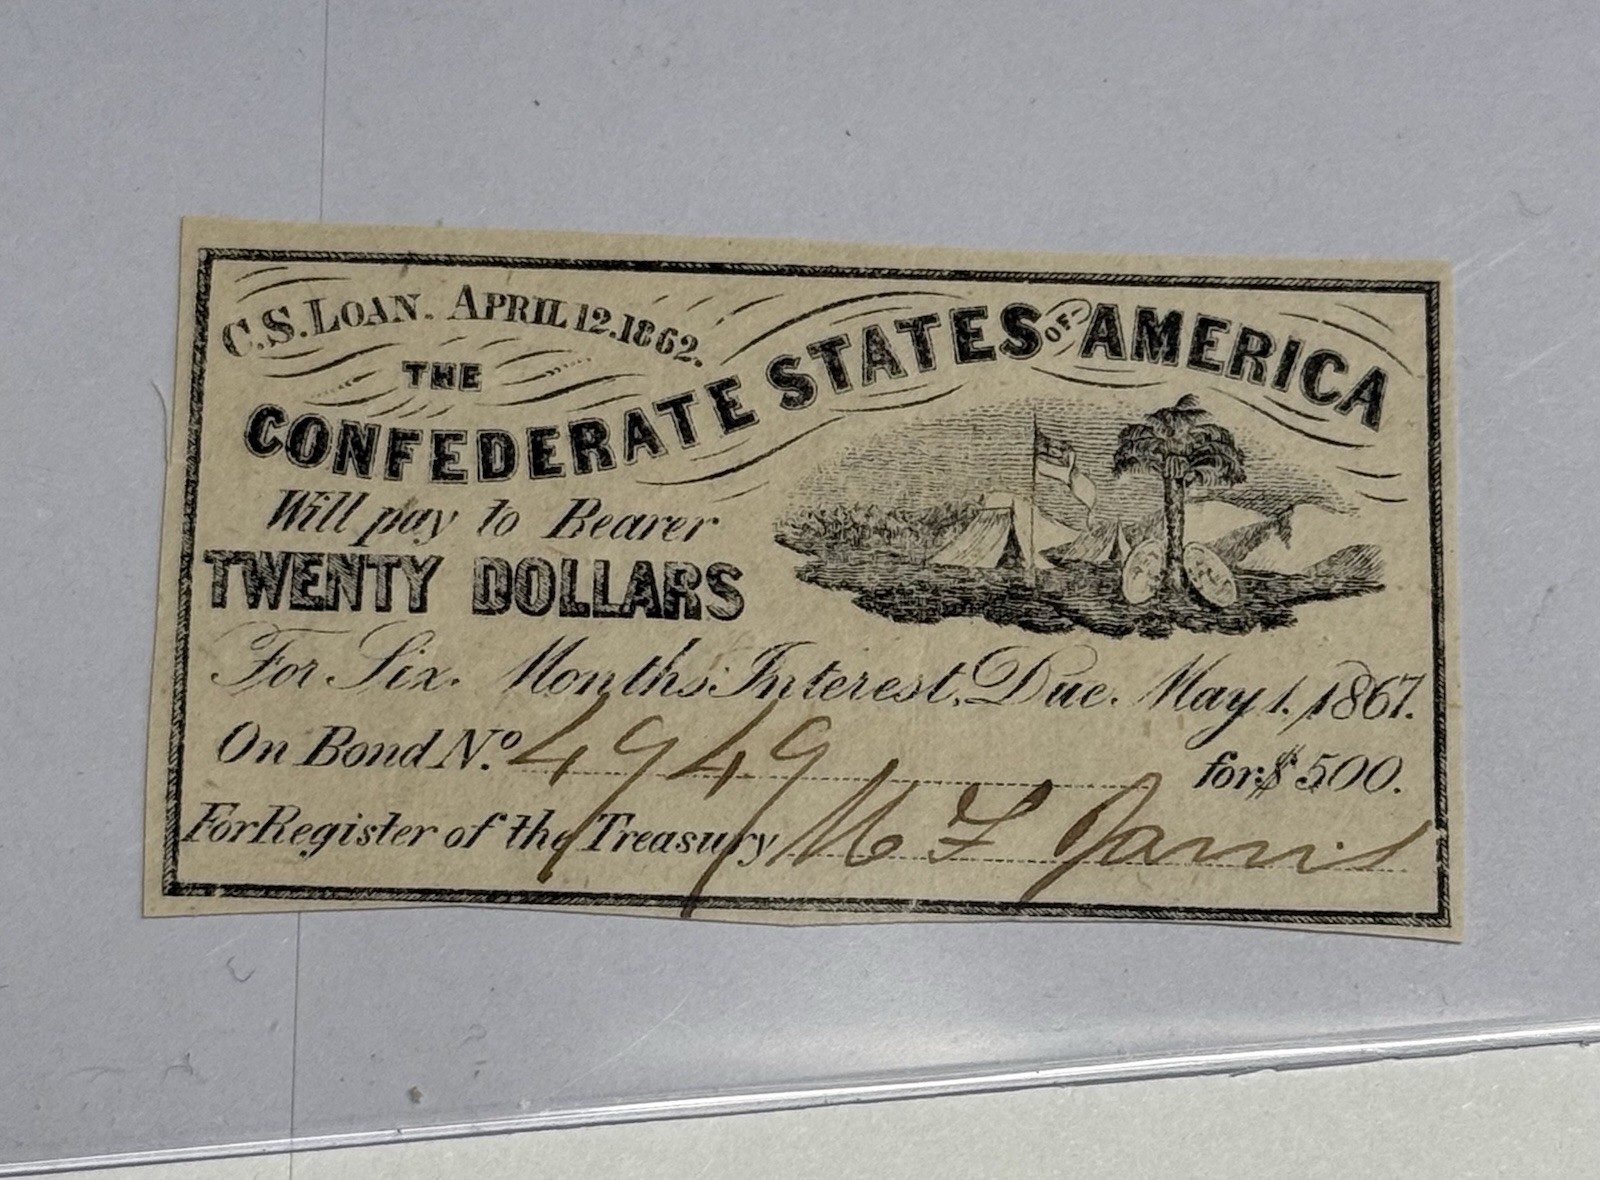 C.S. LOAN. APRIL 12. 1862.
THE
CONFEDERATE STATES OF AMERICA
Will pay to Bearer
TWENTY DOLLARS
For Six Months Interest, Due. May 1. 1867.
On Bond No. 4949 for $500.
For Register of the Treasury M F Jarvis